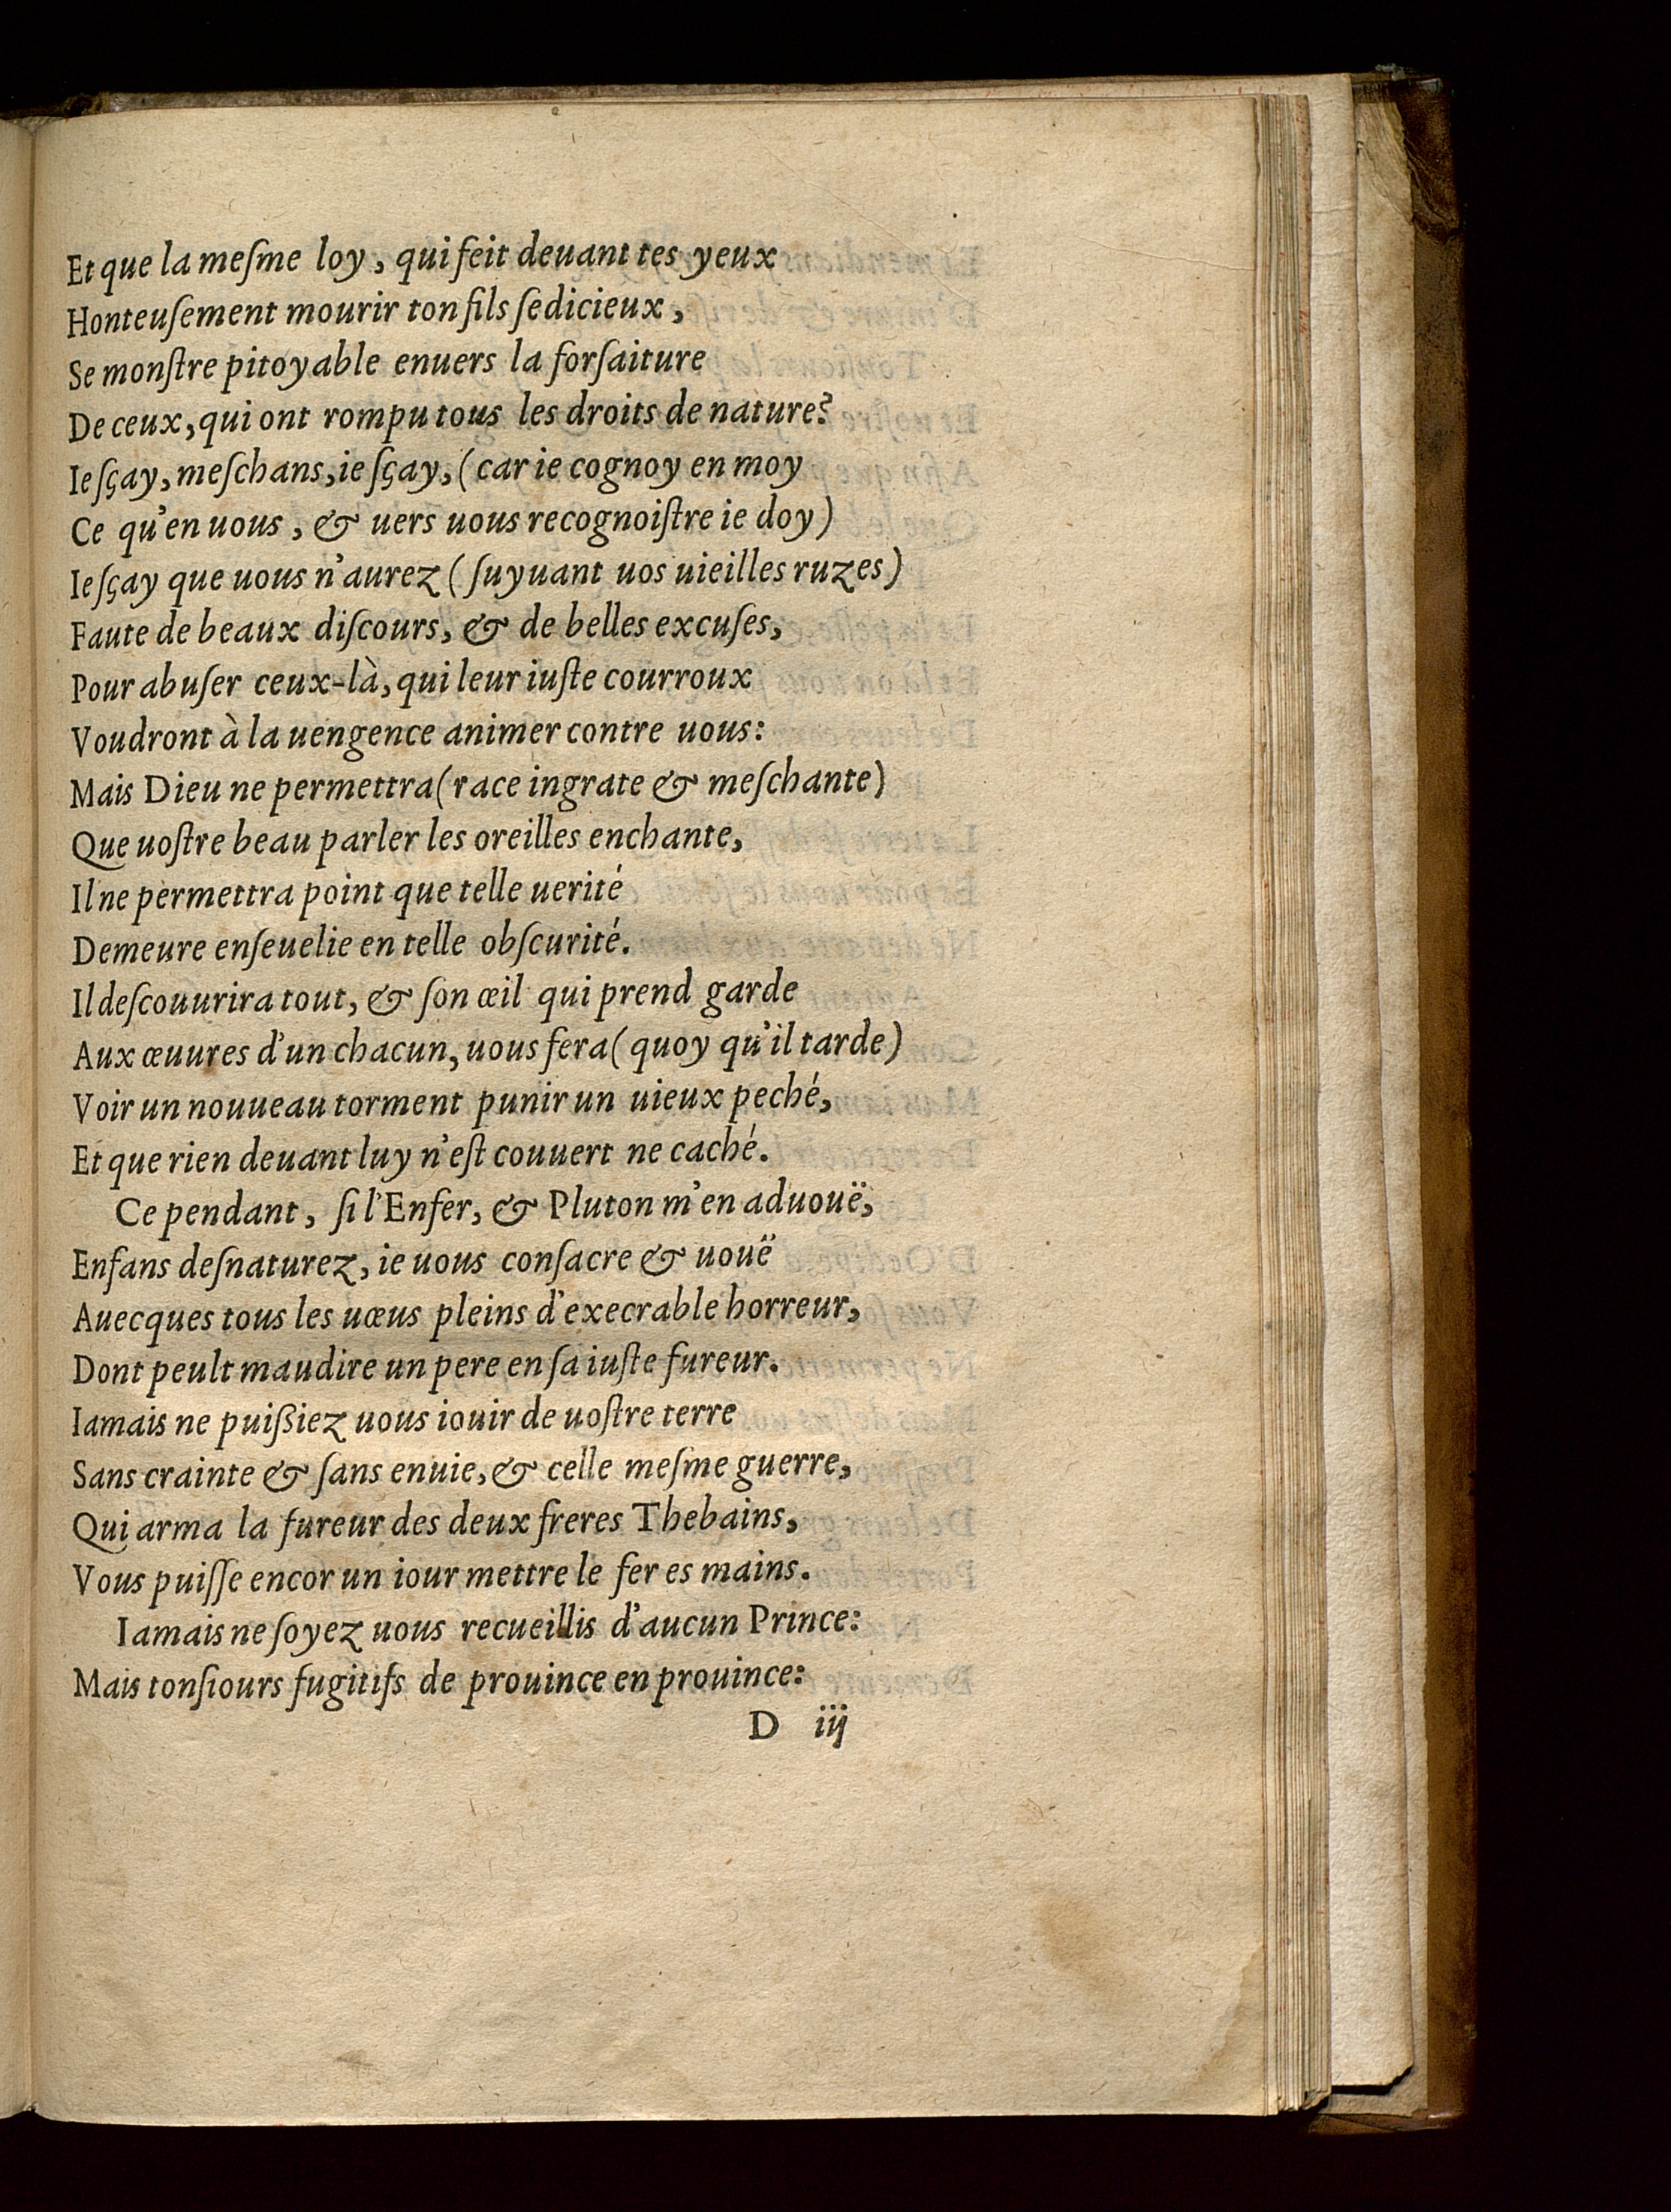 Et que la meſme loy, qui feit deuant tes yeux
Honteuſement mourir ton fils ſedicieux,
Se monſtre pitoyable enuers la forfaiture
De ceux, qui ont rompu tous les droits de nature?
Ie ſçay, meſchans, ie ſçay, (car ie cognoy en moy
Ce qu'en uous, & uers uous recognoiſtre ie doy)
Ie ſçay que uous n'aurez (ſuyuant uos uieilles ruzes)
Faute de beaux diſcours, & de belles excuſes,
Pour abuſer ceux-là, qui leur iuſte courroux
Voudront à la uengence animer contre uous:
Mais Dieu ne permettra (race ingrate & meſchante)
Que uoſtre beau parler les oreilles enchante,
Il ne permettra point que telle uerité
Demeure enſeuelie en telle obſcurité.
Il deſcouurira tout, & ſon œil qui prend garde
Aux œuures d'un chacun, uous fera (quoy qu'il tarde)
Voir un nouueau torment punir un uieux peché,
Et que rien deuant luy n'eſt couuert ne caché.
Ce pendant, ſi l'Enfer, & Pluton m'en aduouë,
Enfans deſnaturez, ie uous conſacre & uouë
Auecques tous les uœus pleins d'execrable horreur,
Dont peult maudire un pere en ſa iuſte fureur.
Iamais ne puißiez uous iouir de uoſtre terre
Sans crainte & ſans enuie, & celle meſme guerre,
Qui arma la fureur des deux freres Thebains,
Vous puiſſe encor un iour mettre le fer es mains.
Iamais ne ſoyez uous recueillis d'aucun Prince:
Mais tonſiours fugitifs de prouince en prouince:
D iij